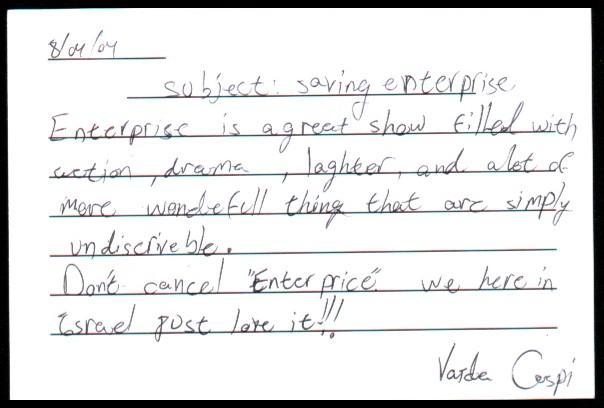 8/04/04
subject: saving enterprise
Enterprise is a great show filled with
action, drama, laghter, and alot of
more wondefull thing that are simply
undiscriveble.
Don't cancel "Enterprice" we here in
Israel just love it!!!
Varda Caspi